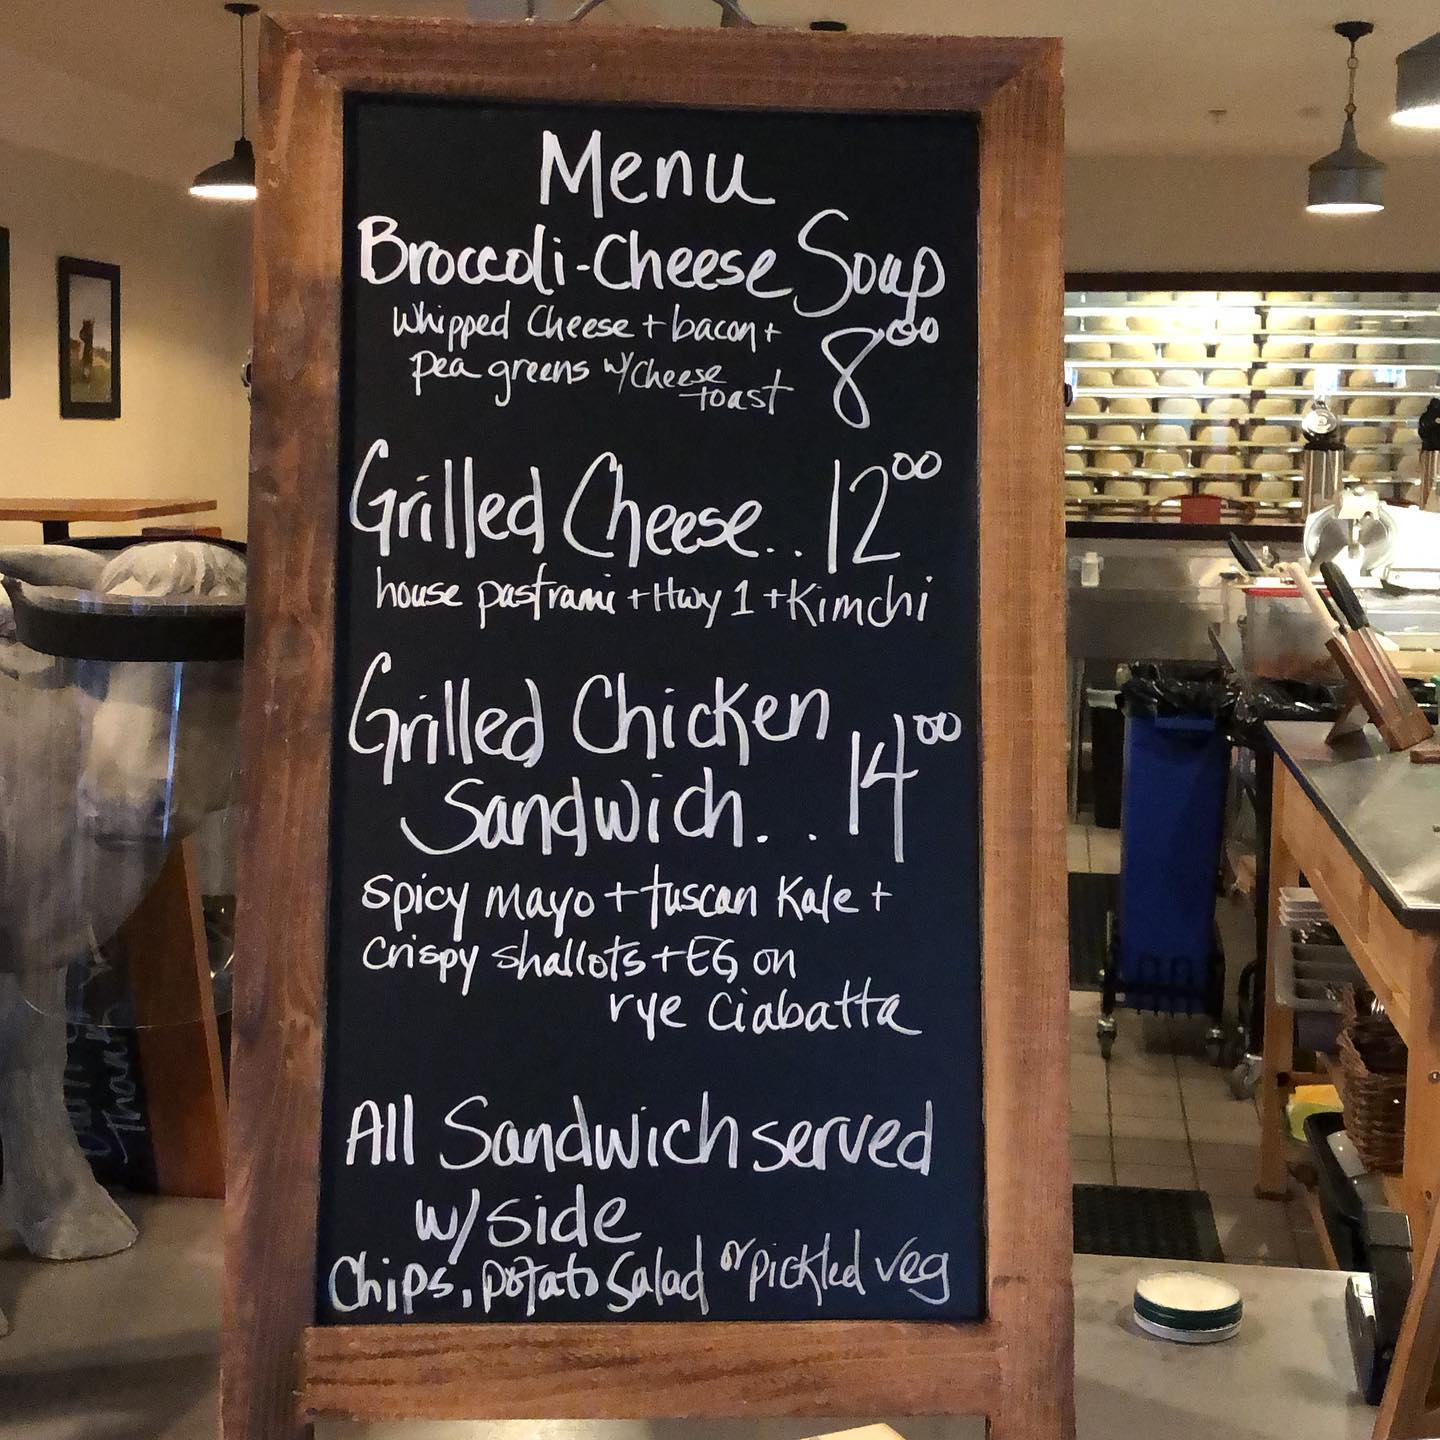 Menu
Broccoli-Cheese Soup
Whipped Cheese + bacon +
pea greens w/cheese
toast
8⁰⁰
Grilled Cheese.. 12⁰⁰
house pastrami + Hwy 1 + Kimchi
Grilled Chicken
Sandwich. . 14⁰⁰
spicy mayo + tuscan Kale +
crispy shallots + EG on
rye ciabatta
All Sandwich served
w/side
Chips, potato Salad or pickled veg